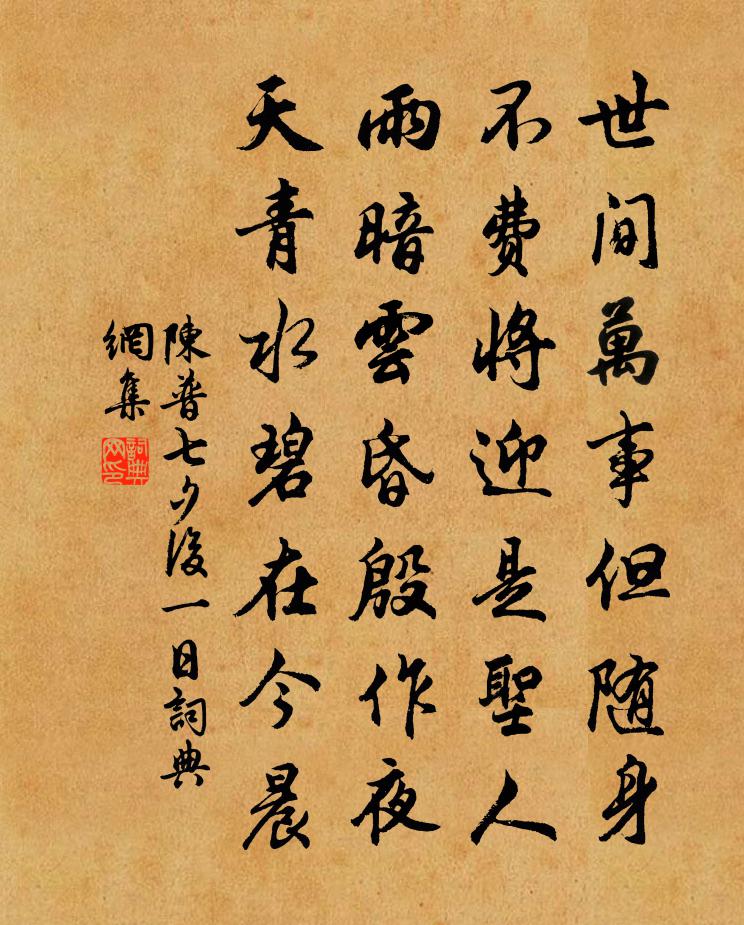 世間萬事但随身
不費將迎是聖人
雨暗雲昏殷作夜
天青水碧在今晨
陳普七夕後一日詞典
網集
詞典
网印